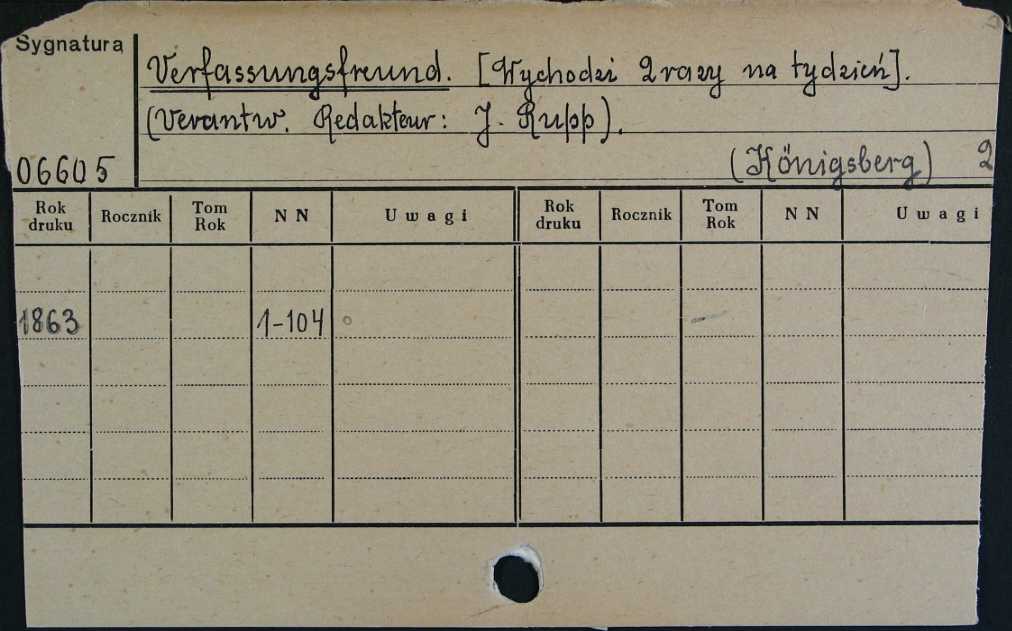 Sygnatura
Verfassungsfreund. [Wychodzi 2 razy na tydzień].
(Verantw. Redakteur: J. Rupp).
06605
(Königsberg) 2
Rok druku Rocznik Tom Rok NN Uwagi Rok druku Rocznik Tom Rok NN Uwagi
1863 1-104